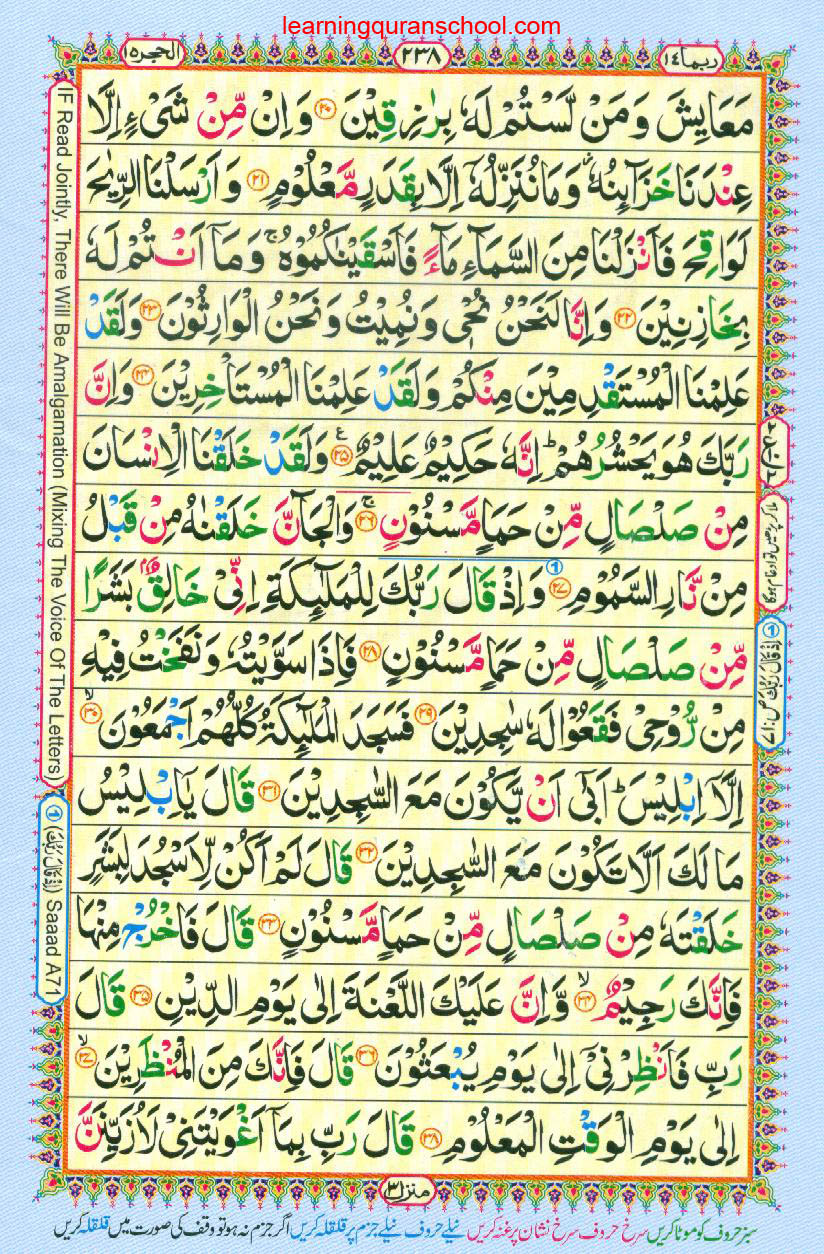 learningquranschool.com
ربما ١٤
٢٣٨
الحجر ١٥
مَعَايِشَ وَمَنْ لَّسْتُمْ لَهٗ بِرٰزِقِيْنَ ۝٢٠ وَاِنْ مِّنْ شَىْءٍ اِلَّا
عِنْدَنَا خَزَآىِٕنُهٗ ؗ وَمَا نُنَزِّلُهٗۤ اِلَّا بِقَدَرٍ مَّعْلُوْمٍ ۝٢١ وَاَرْسَلْنَا الرِّيٰحَ
لَوَاقِحَ فَاَنْزَلْنَا مِنَ السَّمَآءِ مَآءً فَاَسْقَيْنٰكُمُوْهُ ۚ وَمَاۤ اَنْتُمْ لَهٗ
بِخَازِنِيْنَ ۝٢٢ وَاِنَّا لَنَحْنُ نُحْيٖ وَنُمِيْتُ وَنَحْنُ الْوَارِثُوْنَ ۝٢٣ وَلَقَدْ
عَلِمْنَا الْمُسْتَقْدِمِيْنَ مِنْكُمْ وَلَقَدْ عَلِمْنَا الْمُسْتَاْخِرِيْنَ ۝٢٤ وَاِنَّ
رَبَّكَ هُوَ يَحْشُرُهُمْ ؕ اِنَّهٗ حَكِيْمٌ عَلِيْمٌ ۝٢٥ ع وَلَقَدْ خَلَقْنَا الْاِنْسَانَ
مِنْ صَلْصَالٍ مِّنْ حَمَاٍ مَّسْنُوْنٍ ۝٢٦ ۚ وَالْجَآنَّ خَلَقْنٰهُ مِنْ قَبْلُ
مِنْ نَّارِ السَّمُوْمِ ۝٢٧ وَاِذْ قَالَ رَبُّكَ لِلْمَلٰٓىِٕكَةِ اِنِّىْ خَالِقٌۢ بَشَرًا
مِّنْ صَلْصَالٍ مِّنْ حَمَاٍ مَّسْنُوْنٍ ۝٢٨ فَاِذَا سَوَّيْتُهٗ وَنَفَخْتُ فِيْهِ
مِنْ رُّوْحِىْ فَقَعُوْا لَهٗ سٰجِدِيْنَ ۝٢٩ فَسَجَدَ الْمَلٰٓىِٕكَةُ كُلُّهُمْ اَجْمَعُوْنَ ۝٣٠ ۙ
اِلَّاۤ اِبْلِيْسَ ؕ اَبٰٓى اَنْ يَّكُوْنَ مَعَ السّٰجِدِيْنَ ۝٣١ قَالَ يٰۤاِبْلِيْسُ
مَا لَكَ اَلَّا تَكُوْنَ مَعَ السّٰجِدِيْنَ ۝٣٢ قَالَ لَمْ اَكُنْ لِّاَسْجُدَ لِبَشَرٍ
خَلَقْتَهٗ مِنْ صَلْصَالٍ مِّنْ حَمَاٍ مَّسْنُوْنٍ ۝٣٣ قَالَ فَاخْرُجْ مِنْهَا
فَاِنَّكَ رَجِيْمٌ ۝٣٤ ۙ وَّاِنَّ عَلَيْكَ اللَّعْنَةَ اِلٰى يَوْمِ الدِّيْنِ ۝٣٥ قَالَ
رَبِّ فَاَنْظِرْنِىْۤ اِلٰى يَوْمِ يُبْعَثُوْنَ ۝٣٦ قَالَ فَاِنَّكَ مِنَ الْمُنْظَرِيْنَ ۝٣٧ ۙ
اِلٰى يَوْمِ الْوَقْتِ الْمَعْلُوْمِ ۝٣٨ قَالَ رَبِّ بِمَاۤ اَغْوَيْتَنِىْ لَاُزَيِّنَنَّ
منزل ٣
سبز حروف کو موٹا کریں سرخ حروف سرخ نشان پر غنہ کریں نیلے حروف نیلے جزم پر قلقلہ کریں اگر جزم نہ ہو تو وقف کی صورت میں قلقلہ کریں
IF Read Jointly, There Will Be Amalgamation (Mixing The Voice Of The Letters)
① (اِذْ قَالَ رَبُّكَ) Saaad A71